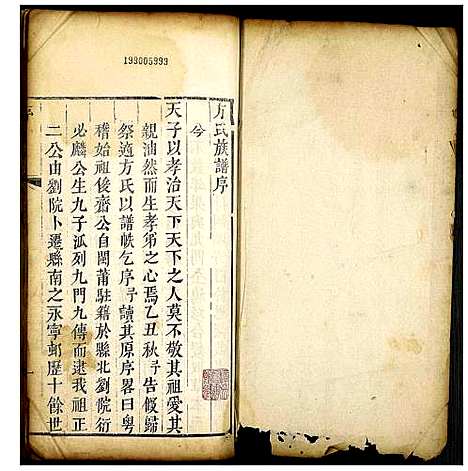 193005993
方氏族譜序
今
天子以孝治天下天下之人莫不敬其祖愛其
親油然而生孝弟之心焉乙丑秋予告假歸
祭適方氏以譜帙乞序予讀其原序畧曰粤
稽始祖俊齋公自閩莆駐籍於縣北劉院衍
必麟公生九子派列九門九傳而逮我祖正
二公由劉院卜遷縣南之永寧邨歷十餘世